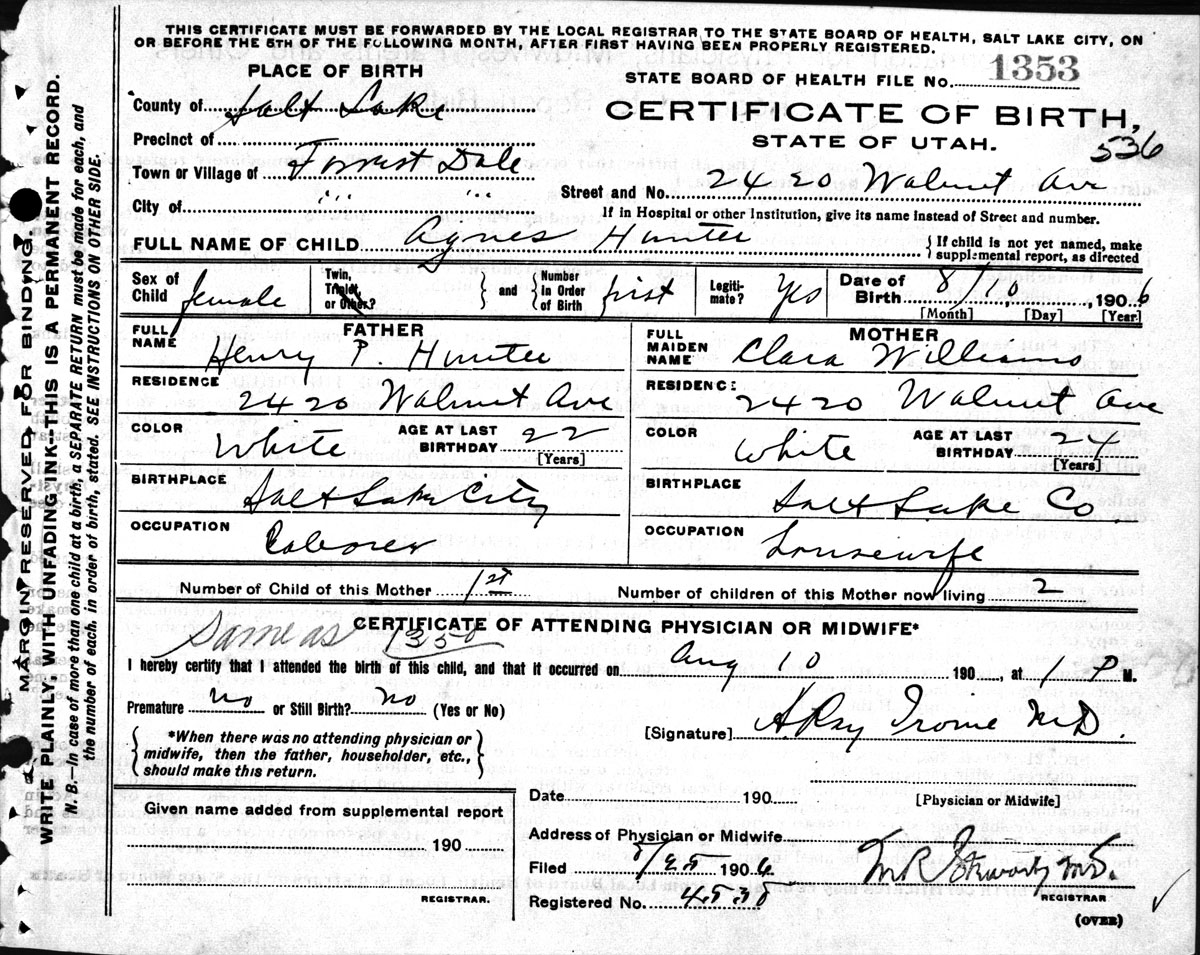 THIS CERTIFICATE MUST BE FORWARDED BY THE LOCAL REGISTRAR TO THE STATE BOARD OF HEALTH, SALT LAKE CITY, ON
OR BEFORE THE 5TH OF THE FOLLOWING MONTH, AFTER FIRST HAVING BEEN PROPERLY REGISTERED.
PLACE OF BIRTH
STATE BOARD OF HEALTH FILE No. 1353
County of Salt Lake
CERTIFICATE OF BIRTH,
Precinct of
STATE OF UTAH.
536
Town or Village of Forrest Dale
Street and No. 2420 Walnut Ave
City of " "
If in Hospital or other Institution, give its name instead of Street and number.
FULL NAME OF CHILD Agnes Hunter
{ If child is not yet named, make
supplemental report, as directed
Sex of Child female
Twin, Triplet, or Other? } and { Number in Order of Birth first
Legiti-mate? Yes
Date of Birth 8/10, 1906
[Month] [Day] [Year]
FATHER
FULL NAME Henry P. Hunter
RESIDENCE 2420 Walnut Ave
COLOR White AGE AT LAST BIRTHDAY 22
[Years]
BIRTHPLACE Salt Lake City
OCCUPATION Laborer
MOTHER
FULL MAIDEN NAME Clara Williams
RESIDENCE 2420 Walnut Ave
COLOR White AGE AT LAST BIRTHDAY 24
[Years]
BIRTHPLACE Salt Lake Co.
OCCUPATION Housewife
Number of Child of this Mother 1st Number of children of this Mother now living 2
Same as 1350
CERTIFICATE OF ATTENDING PHYSICIAN OR MIDWIFE*
I hereby certify that I attended the birth of this child, and that it occurred on Aug 10 190 , at 1 P M.
Premature no or Still Birth? no (Yes or No)
[Signature] A Ray Irvine M.D.
{ *When there was no attending physician or
midwife, then the father, householder, etc.,
should make this return. }
[Physician or Midwife]
Date 190
Given name added from supplemental report
190
REGISTRAR.
Address of Physician or Midwife
Filed 8/25 1906
M.D.
REGISTRAR
Registered No. 4538
(OVER)
MARGIN RESERVED FOR BINDING.
WRITE PLAINLY, WITH UNFADING INK--THIS IS A PERMANENT RECORD.
N. B.--In case of more than one child at a birth, a SEPARATE RETURN must be made for each, and
the number of each. in order of birth, stated. SEE INSTRUCTIONS ON OTHER SIDE.